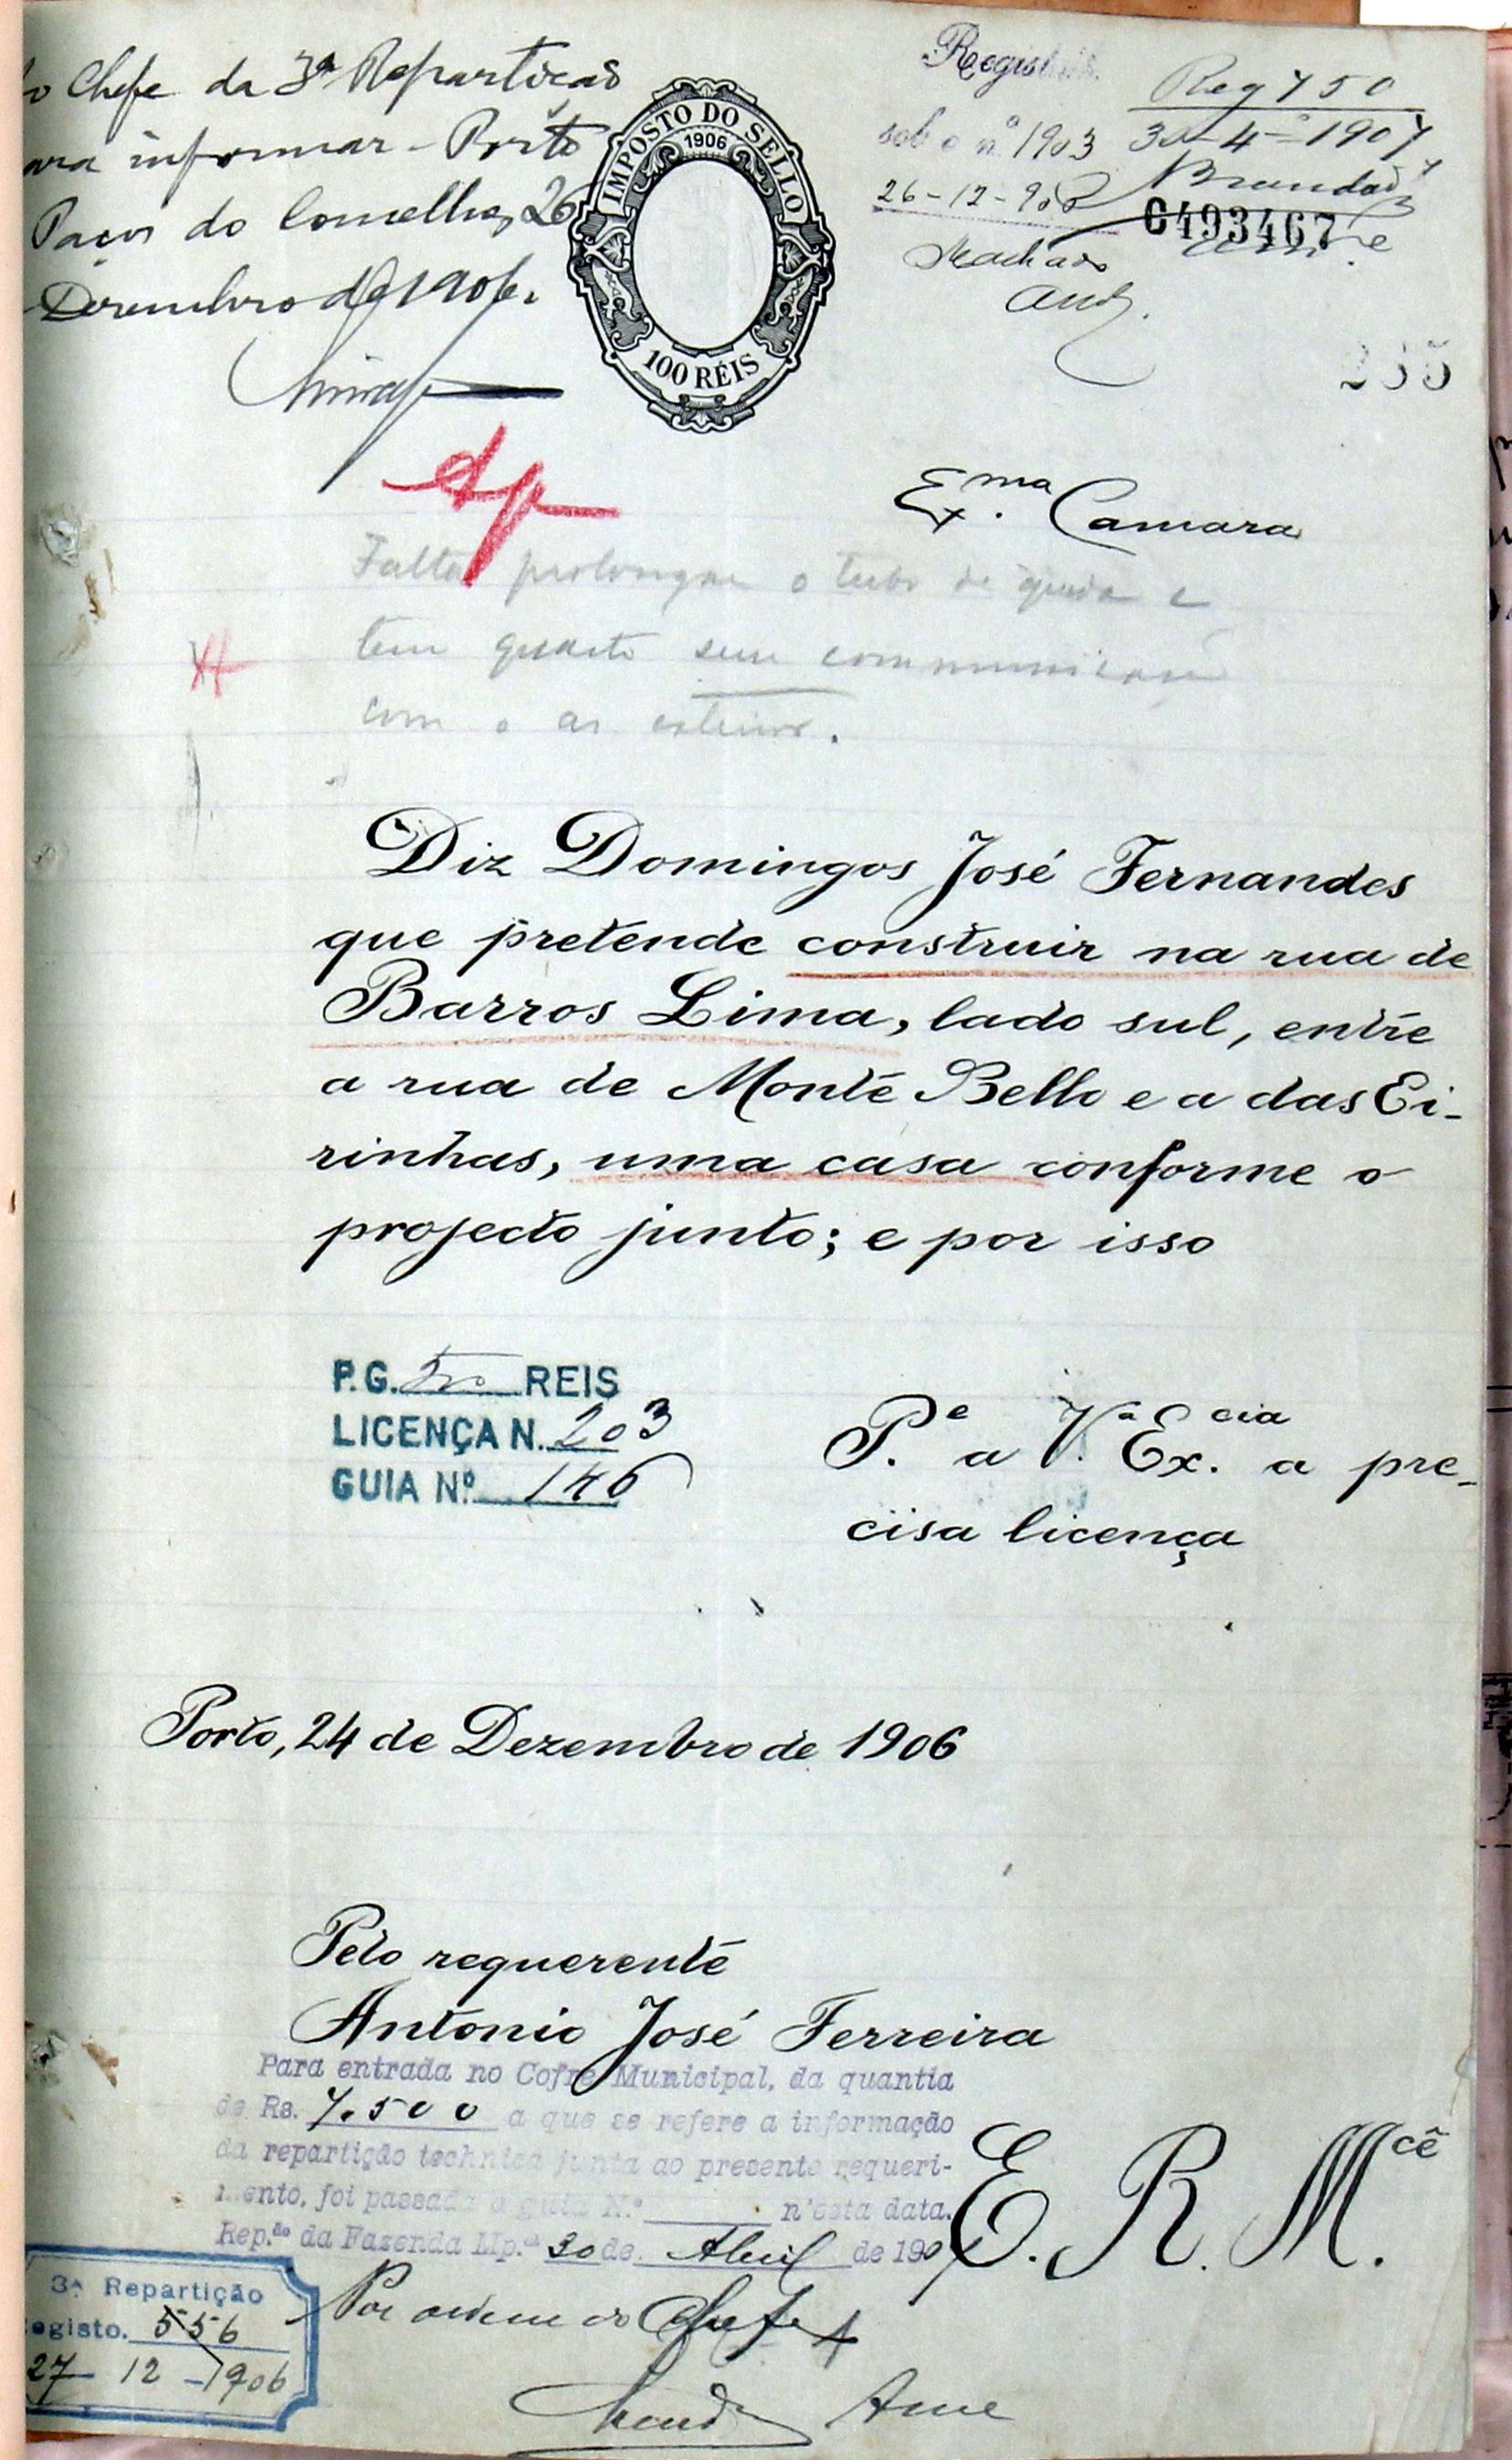 o Chefe da 3ª Repartição
ara informar - Porto
Paços do Concelho, 26
Dezembro de 1906.
IMPOSTO DO SELLO
1906
100 RÉIS
Reg 750
30-4-1907
Brandão
sob o nº 1903
26-12-906
Machado
C493467
235
Exma. Camara
Falta prolongar o tubo de queda e
tem quarto sem communicação
com o ar exterior.
Diz Domingos José Fernandes
que pretende construir na rua de
Barros Lima, lado sul, entre
a rua de Monte Bello e a das Ei-
rinhas, uma casa conforme o
projecto junto; e por isso
P.G. REIS
LICENÇA N. 203
GUIA Nº 146
P.e a V.ª Ex.cia a pre-
cisa licença
Porto, 24 de Dezembro de 1906
Pelo requerente
Antonio José Ferreira
Para entrada no Cofre Municipal, da quantia
de Rs. 7.500 a que se refere a informação
da repartição technica junta ao presente requeri-
mento, foi passada a guia N.º n'esta data.
Rep.ão da Fazenda Mp.al 30 de Abril de 1907
E. R. M.cê
Por ordem do Chefe
3ª Repartição
egisto. 556
27-12-1906